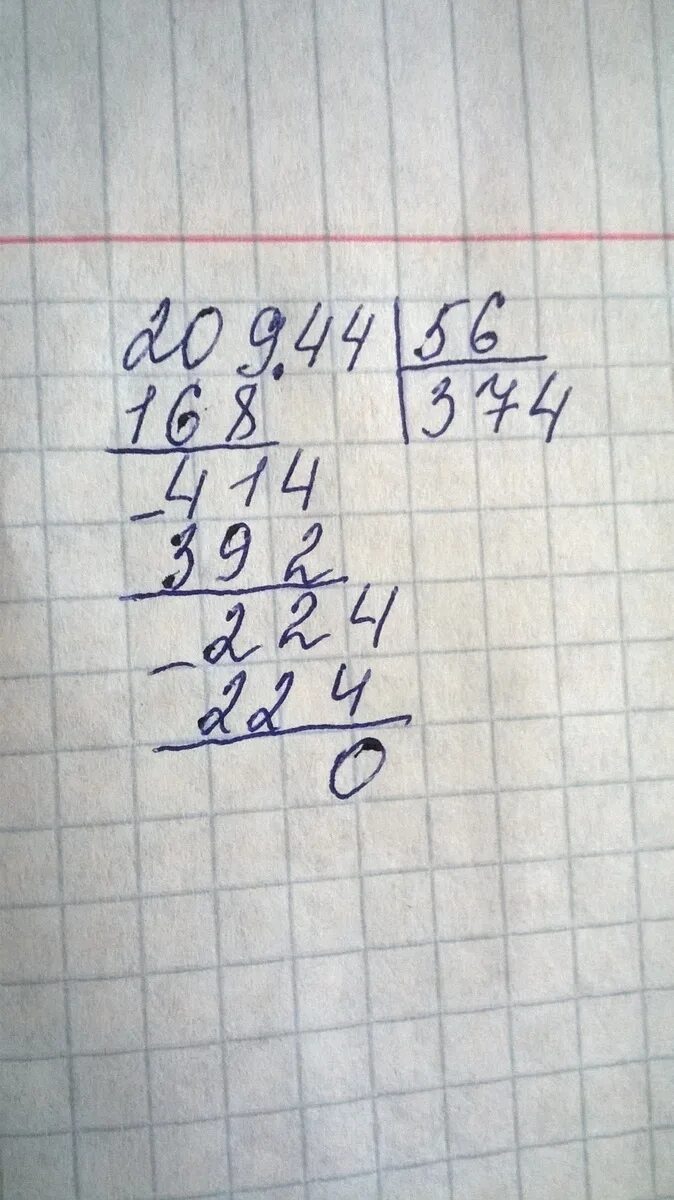 209.44 56
168 374
-414
392
-224
224
0